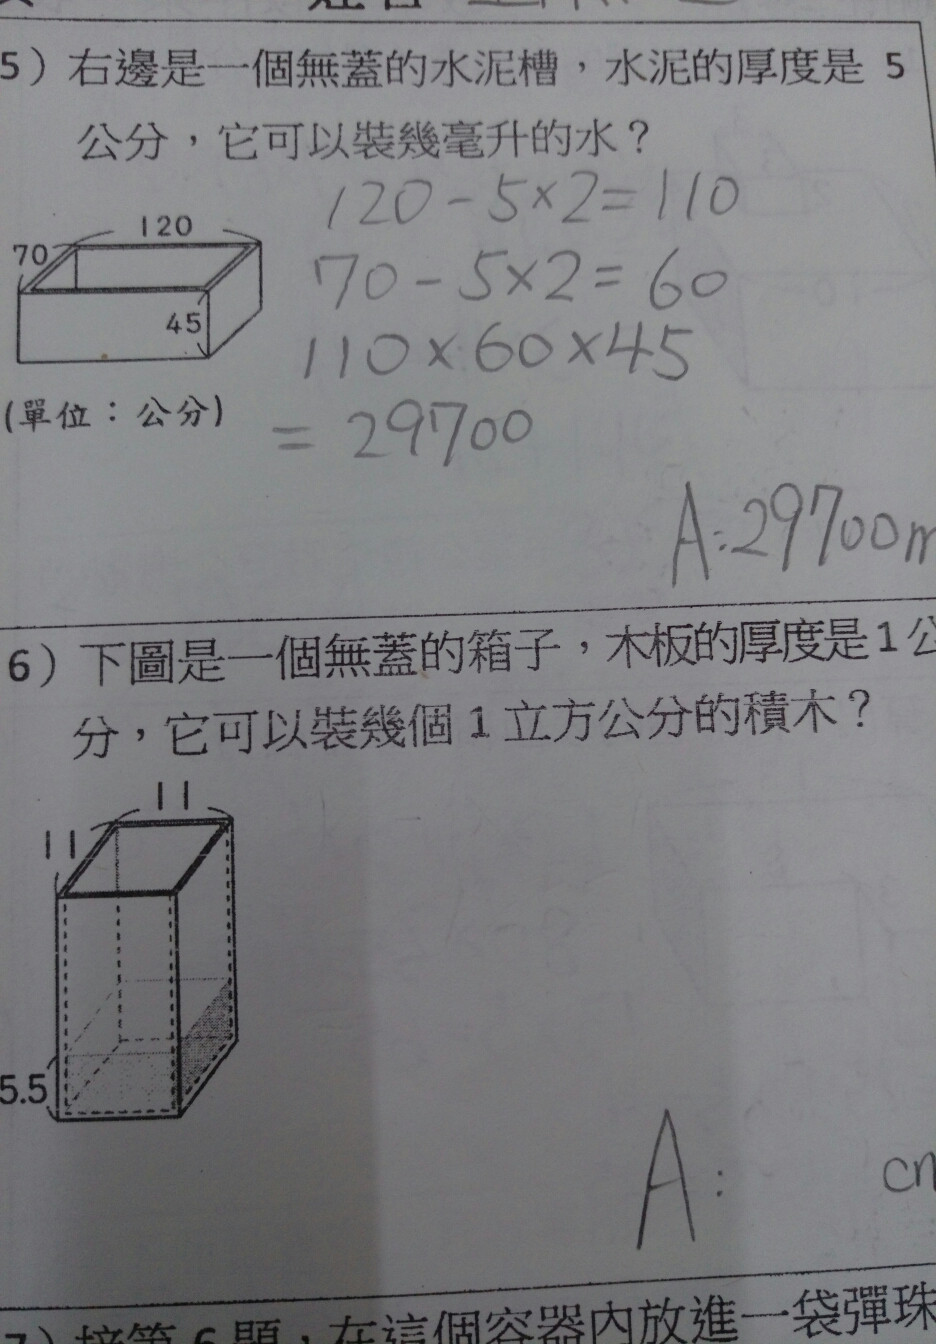 5）右邊是一個無蓋的水泥槽，水泥的厚度是 5
公分，它可以裝幾毫升的水？
120-5×2=110
70-5×2=60
110×60×45
=29700
120
70
45
(單位：公分)
A:29700m
6）下圖是一個無蓋的箱子，木板的厚度是1公
分，它可以裝幾個 1 立方公分的積木？
11
11
5.5
A: cm
7）接第 6 題，在這個容器內放進一袋彈珠